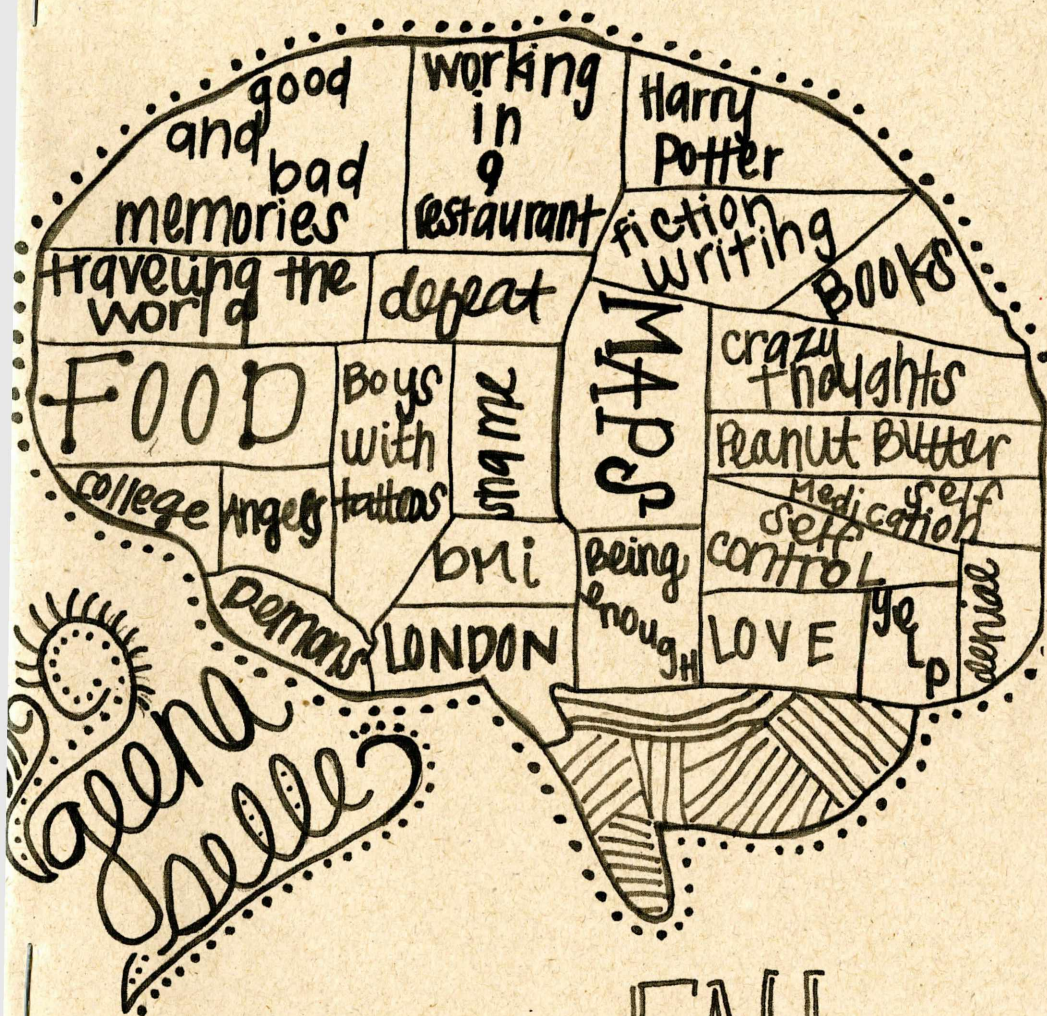 good
and
bad
memories
working
in
a
restaurant
Harry
Potter
fiction
writing
BOOKS
traveling the
world
defeat
MAPS
crazy
thoughts
FOOD
Boys
with
tattoos
Peanut Butter
self
Medication
self
control
college
Angels
bmi
Being
enough
denial
Demons
LONDON
LOVE
YeLP
geena
selle